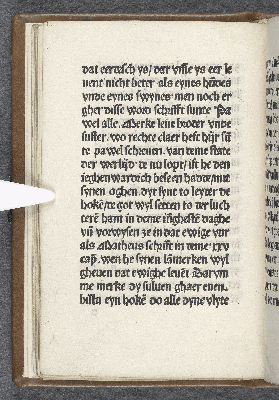 dat eertsch ys/ der visse ys eer le
uent nicht beter als eynes hūdes
vnde eynes swynes men noch er
gher disse word schrifft sunte Pa
wel alle. Merke leue broder vnde
suster. wo rechte claer heft hijr sū
te pawel screuen. van deme state
der werlijd te nu lopt/ ist he den
ieghen wardich beseen hadde/mit
synen oghen dyt synt to leyder de
hoke/de got wyl setten to der luch
teren hant in deme iūghesté daghe
vñ vorwysen ze in dat ewige vür
als Matheus schrift in deme xxv
cap. wen he synen lāmerken wyl
gheuen dat ewighe leuēt Dar vm
me merke dy suluen ghaer euen.
bistu eyn hoke do alle dyne vlyte